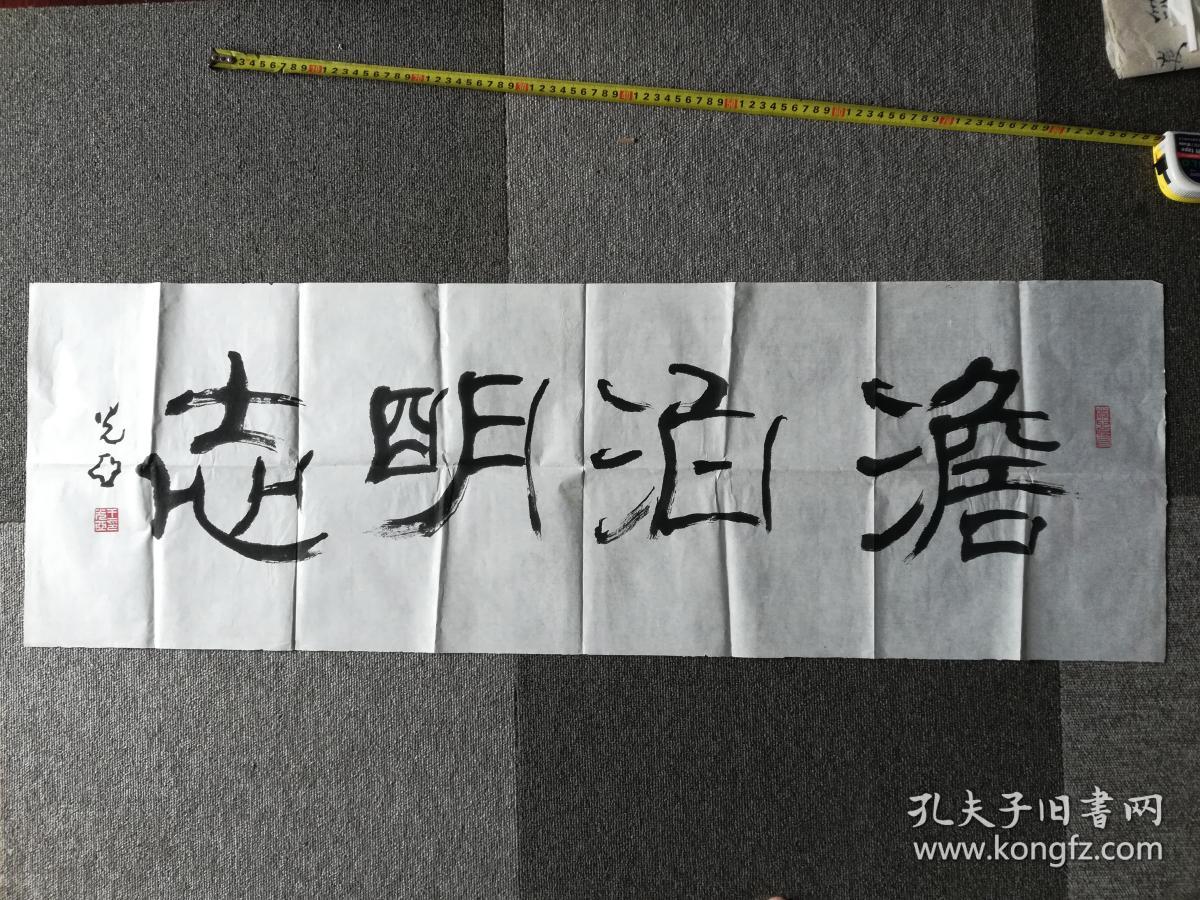 澹泊明志
光亞
孔夫子旧書网
www.kongfz.com